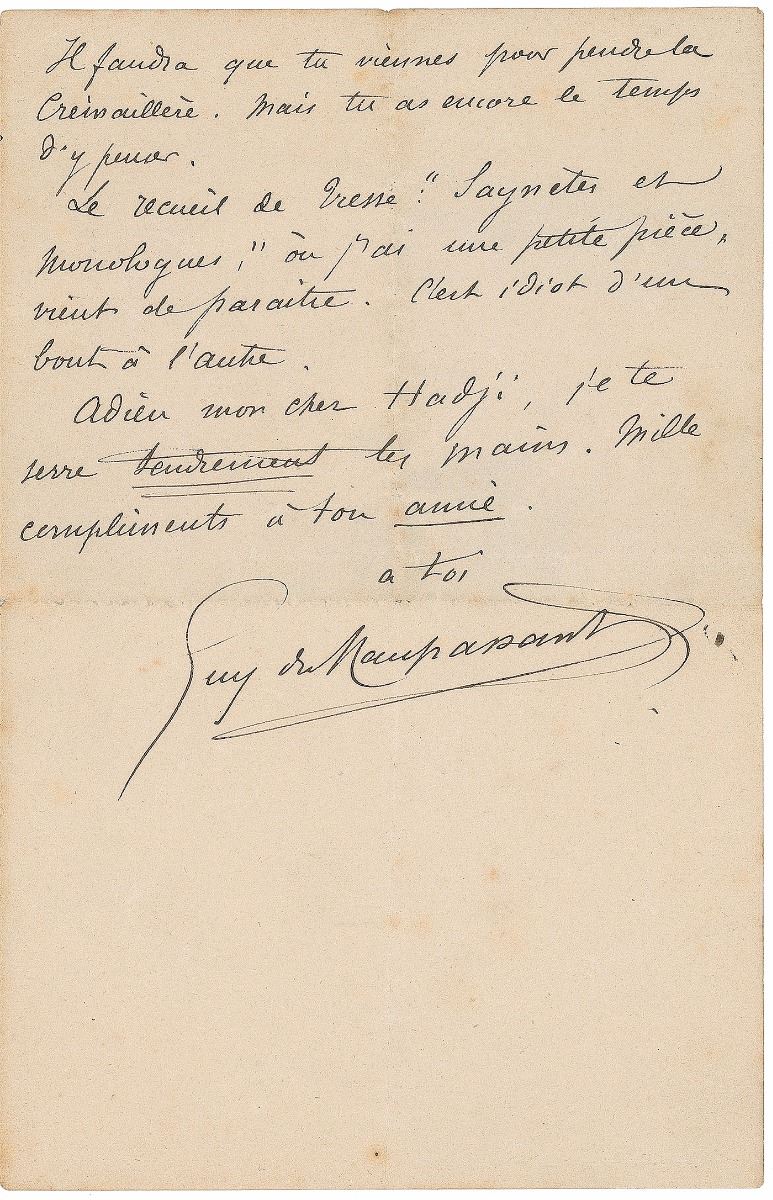 Il faudra que tu viennes pour pendre la
Crémaillère. Mais tu as encore le temps
d'y penser.
Le recueil de Tresse : "Saynètes et
Monologues," où j'ai une petite pièce,
vient de paraitre. C'est idiot d'un
bout à l'autre.
Adieu mon cher Hadji, je te
serre tendrement les mains. Mille
compliments à ton amie.
a toi
Guy de Maupassant